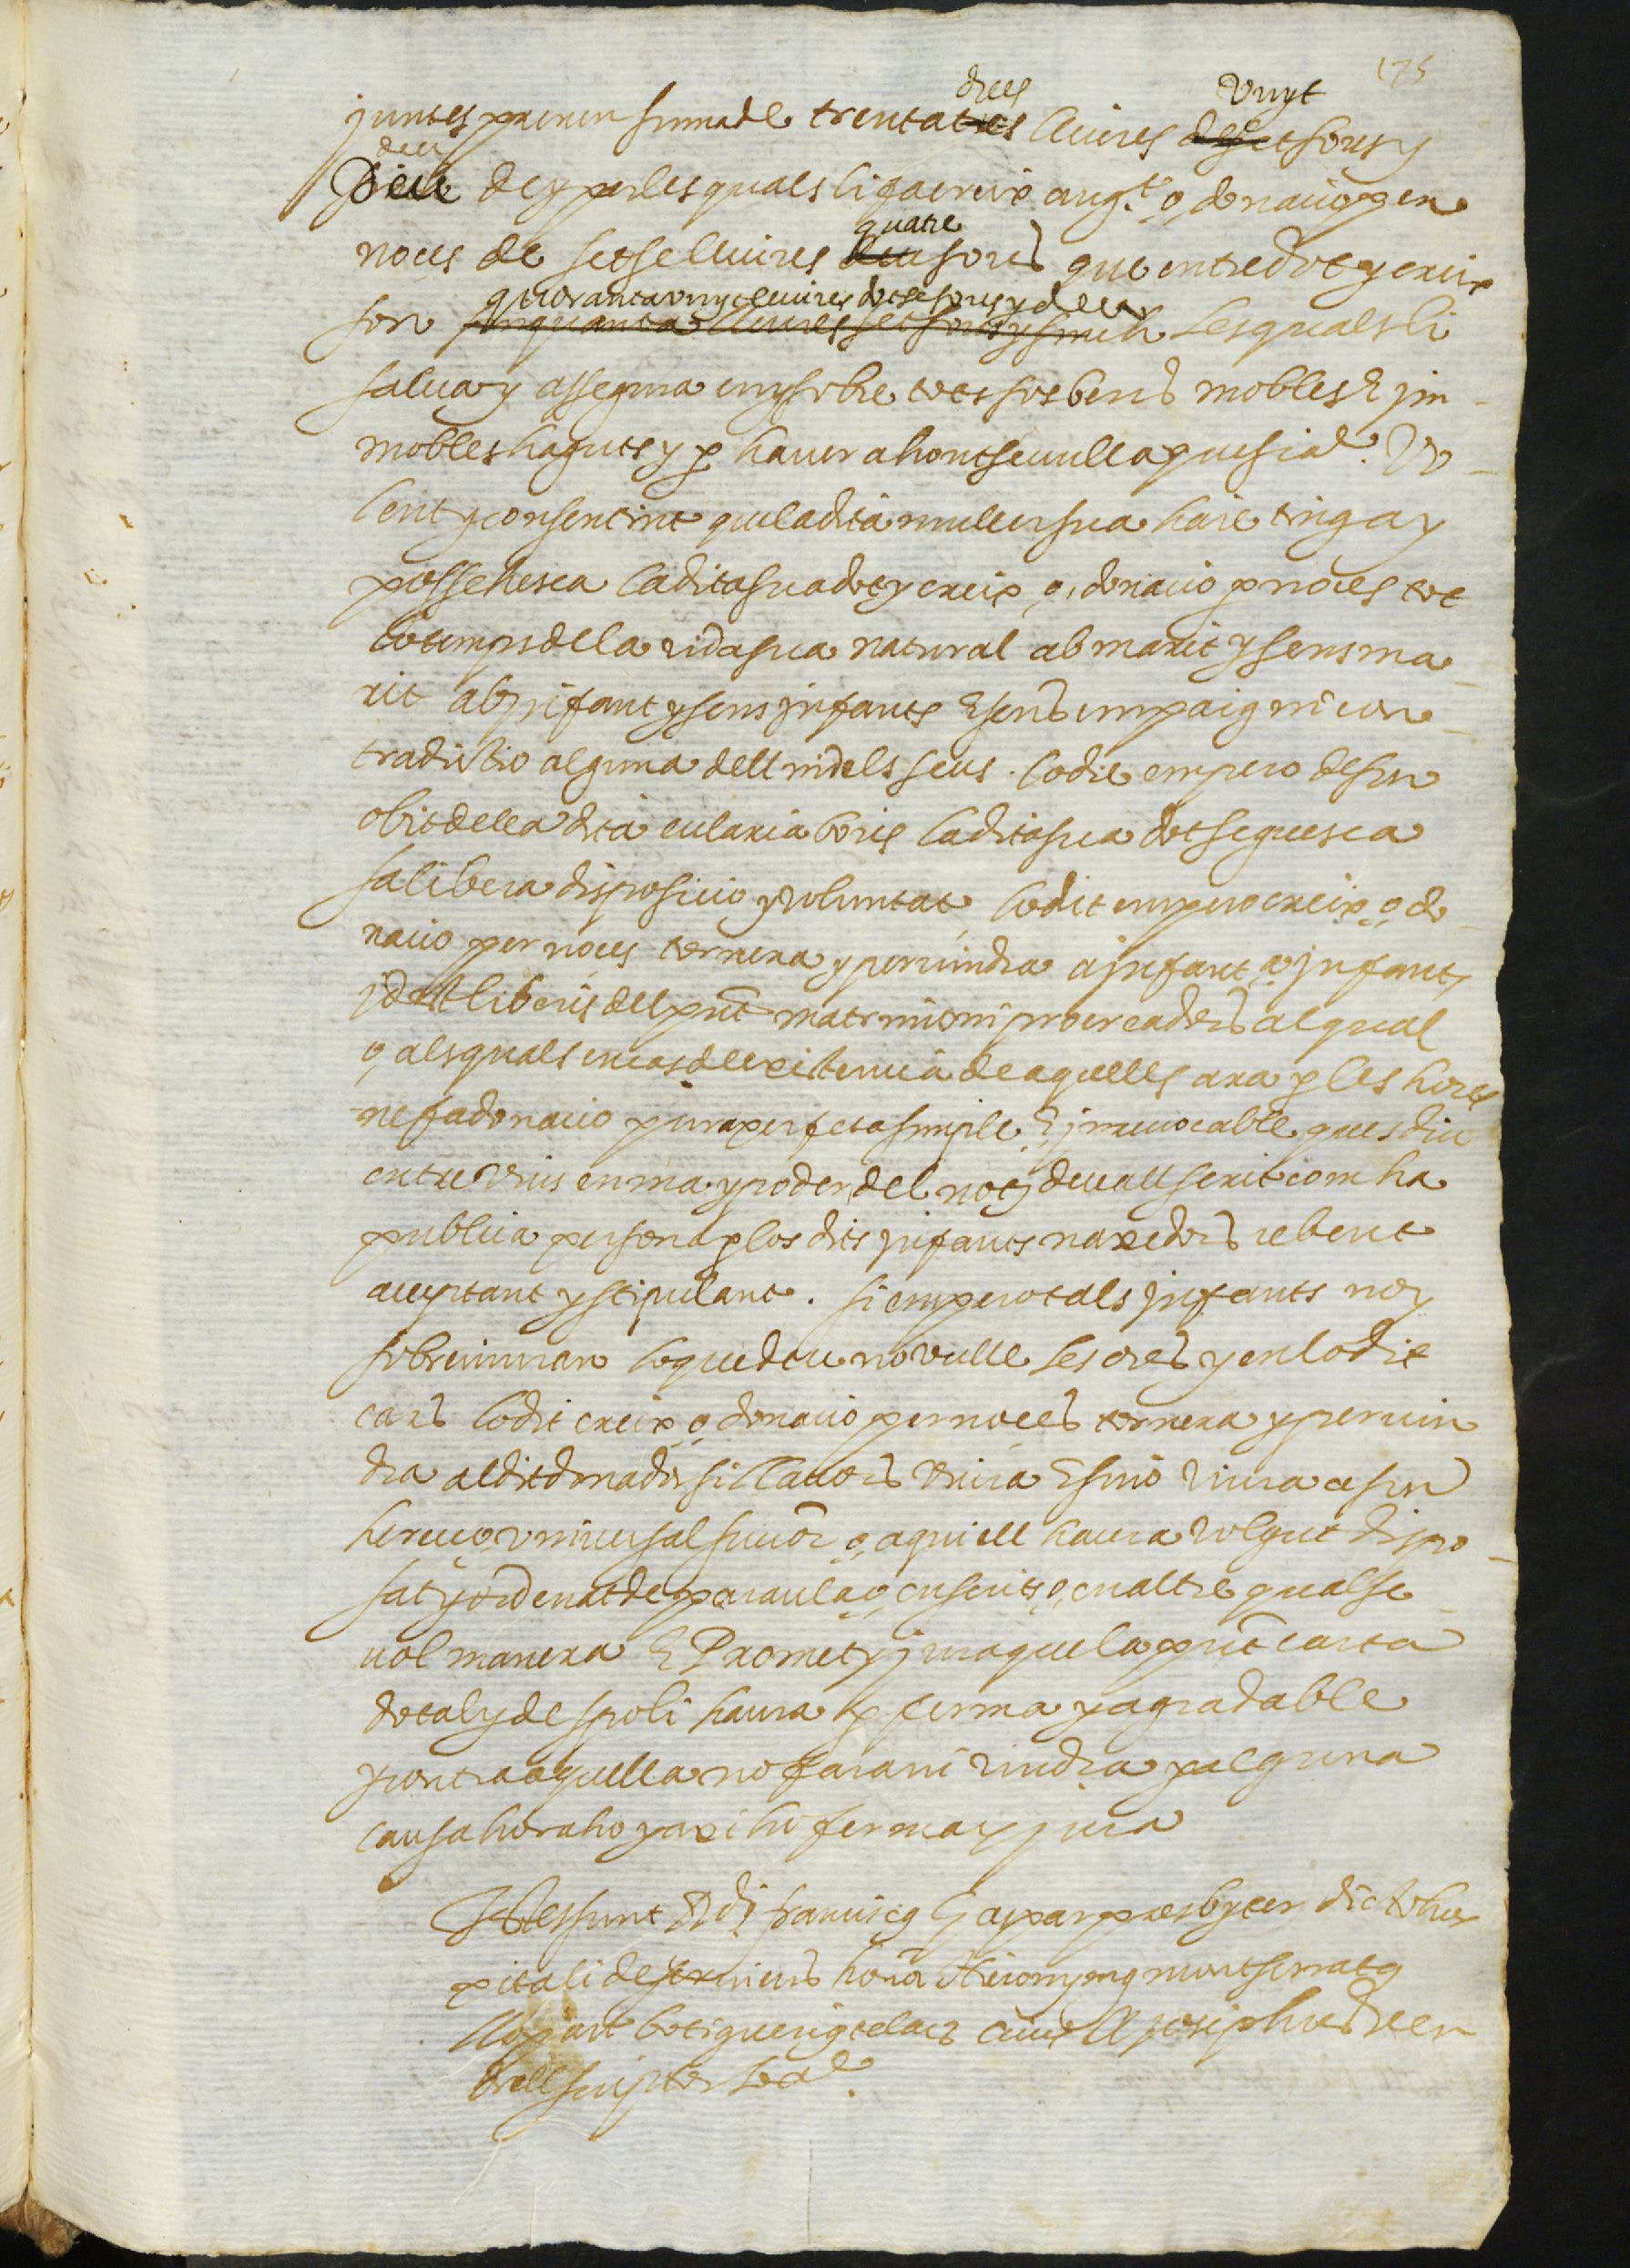 175
dues vuyt
juntes prenen summa de trenta tres lliures desset sous y
deu
sis de y per les quals li fa creix augt. o, donatio per
quatre
noces de setse lliures deu sous que entre dot y creix
quoranta vuyt lliures dotse sous y deu
son sinquanta lliures set sous y sinch les quals li
salva y assegura en y sobre tots sos bens mobles E jm
mobles haguts y p haver ahont sevulla que sia. Vo
lent y consentint que la dita muller sua haie tinga y
possehesca la dita sua dot y creix o, donatio p noces tot
lo temps de la vida sua natural ab marit y sens ma
rit ab jnfant y sens jnfants E sens empaig ni con
tradictio alguna dell ni dels seus. Lo die empero de son
obit de lla dita eularia boris la dita sua dot seguesca
sa libera dispositio y voluntat lo dit empero creix o, do
natio per noces tornera y pervindra a jnfant o, jnfants
jdest liberis del pnt matrimoni procreadors al qual
o, als quals en cas de existencia de aquells ara p les hores
ne fa donatio pura perfeta simple E jrrevocable ques diu
entre vius en ma y poder del noty devall scrit com ha
publica persona p los dits jnfants naxedors rebent
acceptant y stipulant. si empero tals jnfants noy
sobreviuran lo que deu no vulle les ores y en lo dit
cars lo dit creix o donatio per noces tornera y pervin
dra al dit donador si llavors viura E sino viura a son
hereu o, universal succor o, a qui ell haura volgut dispo
sat y ordenat de paraula o, en scrits o, en altre qualse
vol manera E Promet y jura que la pnt carta
dotal y de spoli haura p ferma y agradable
y contra aquella no fara ni vindra p alguna
causa ho raho y axi hi ferma y jura
Testes sunt Rdi. franciscq Gaspar presbyter dicto hos
pitali deserviens honor Hieronymq montserratq
llopart botiguerig telars civis et Josephus Ver
drell scriptor hed.